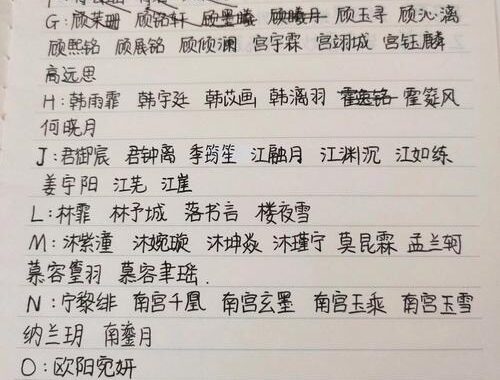 G：顾荣珊 顾铭轩 顾墨曦 顾曦月 顾玉寻 顾沁漓
顾熙铭 顾展铭 顾倾澜 宫宇霖 宫翊城 宫钰麟
高远思
H：韩雨霏 韩宇廷 韩苡画 韩漓羽 霍逸铭 霍箢风
何晓月
J：君御宸 君钟离 季筠笙 江融月 江渊沉 江如练
姜宇阳 江芜 江崖
L：林霏 林予城 落书言 楼夜雪
M：沐紫潼 沐婉璇 沐坤焱 沐瑾宁 莫昆霖 孟兰轲
慕容篁羽 慕容聿瑶.
N：宁黎绯 南宫千凰 南宫玄墨 南宫玉乘 南宫玉雪
纳兰玥 南鎏月
O：欧阳宛妍